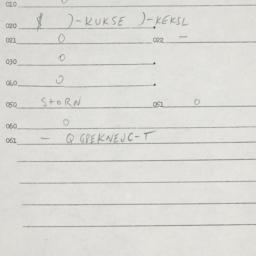 010 0
020 $ )-KUKSE )-KEKSL
021 0 022 -
030 0
040 0
050 STORN 051 0
060 0
061 - QGPEKNEJC-T